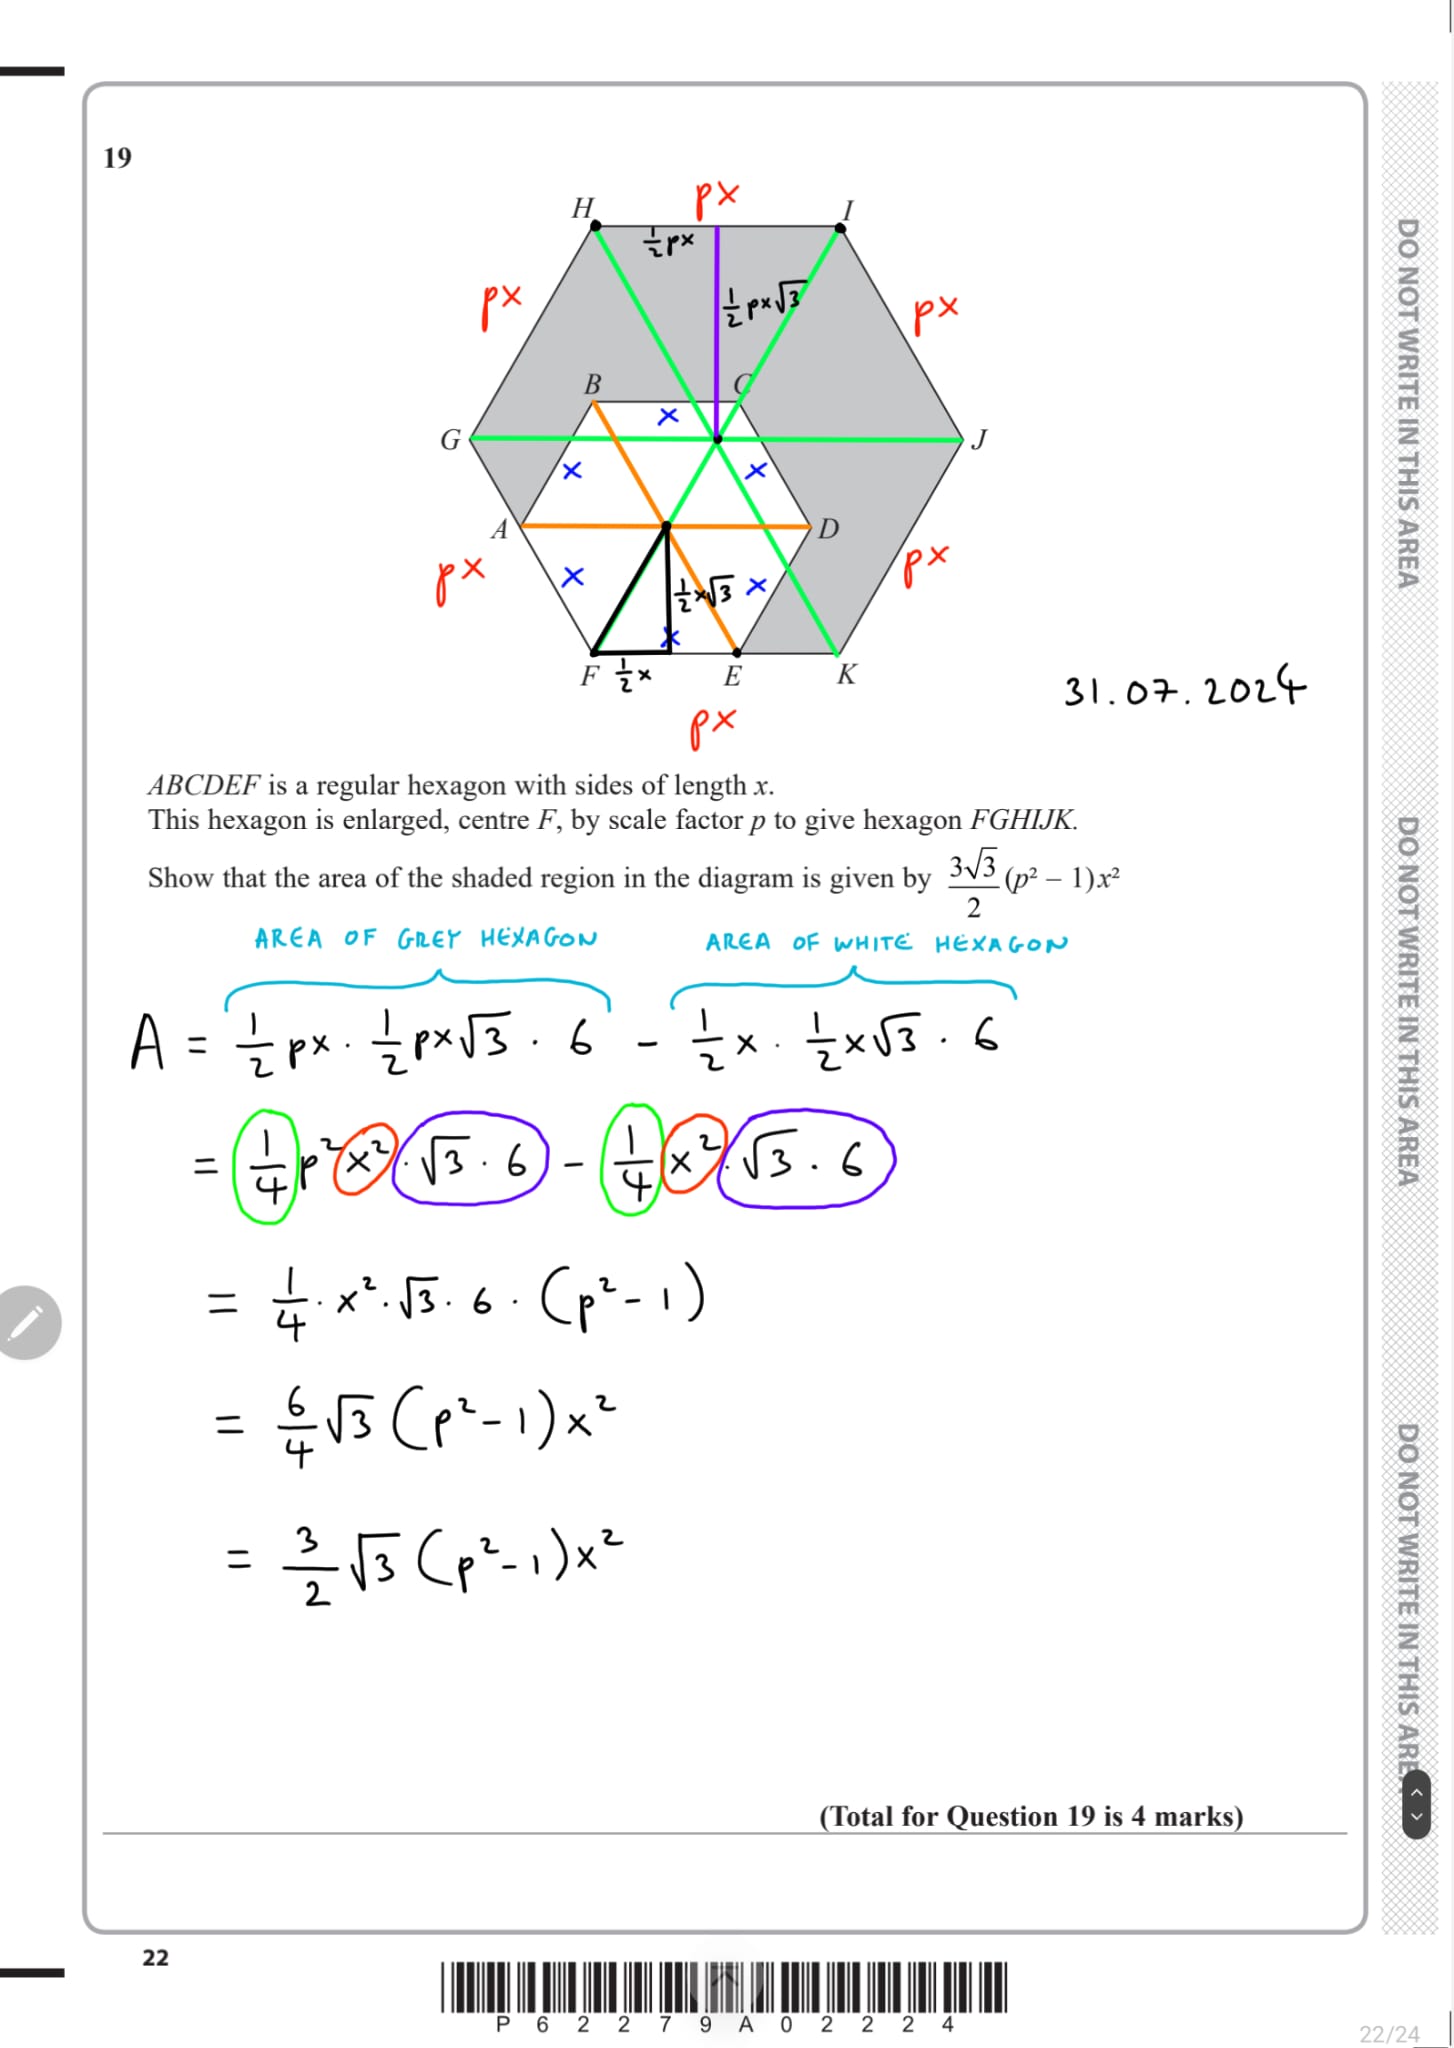 19
px
H
I
½px
px
½px√3
px
B
C
x
G
J
x
x
A
D
px
px
x
½x√3
x
x
F
½x
E
K
31.07.2024
px
ABCDEF is a regular hexagon with sides of length x.
This hexagon is enlarged, centre F, by scale factor p to give hexagon FGHIJK.
Show that the area of the shaded region in the diagram is given by 3√3/2 (p² – 1)x²
AREA OF GREY HEXAGON AREA OF WHITE HEXAGON
A = ½px · ½px√3 · 6 - ½x · ½x√3 · 6
= ¼p²x² · √3 · 6 - ¼x² · √3 · 6
= ¼ · x² · √3 · 6 · (p² - 1)
= 6/4 √3 (p² - 1)x²
= 3/2 √3 (p² - 1)x²
(Total for Question 19 is 4 marks)
22
P62279A02224
22/24
DO NOT WRITE IN THIS AREA
DO NOT WRITE IN THIS AREA
DO NOT WRITE IN THIS ARE